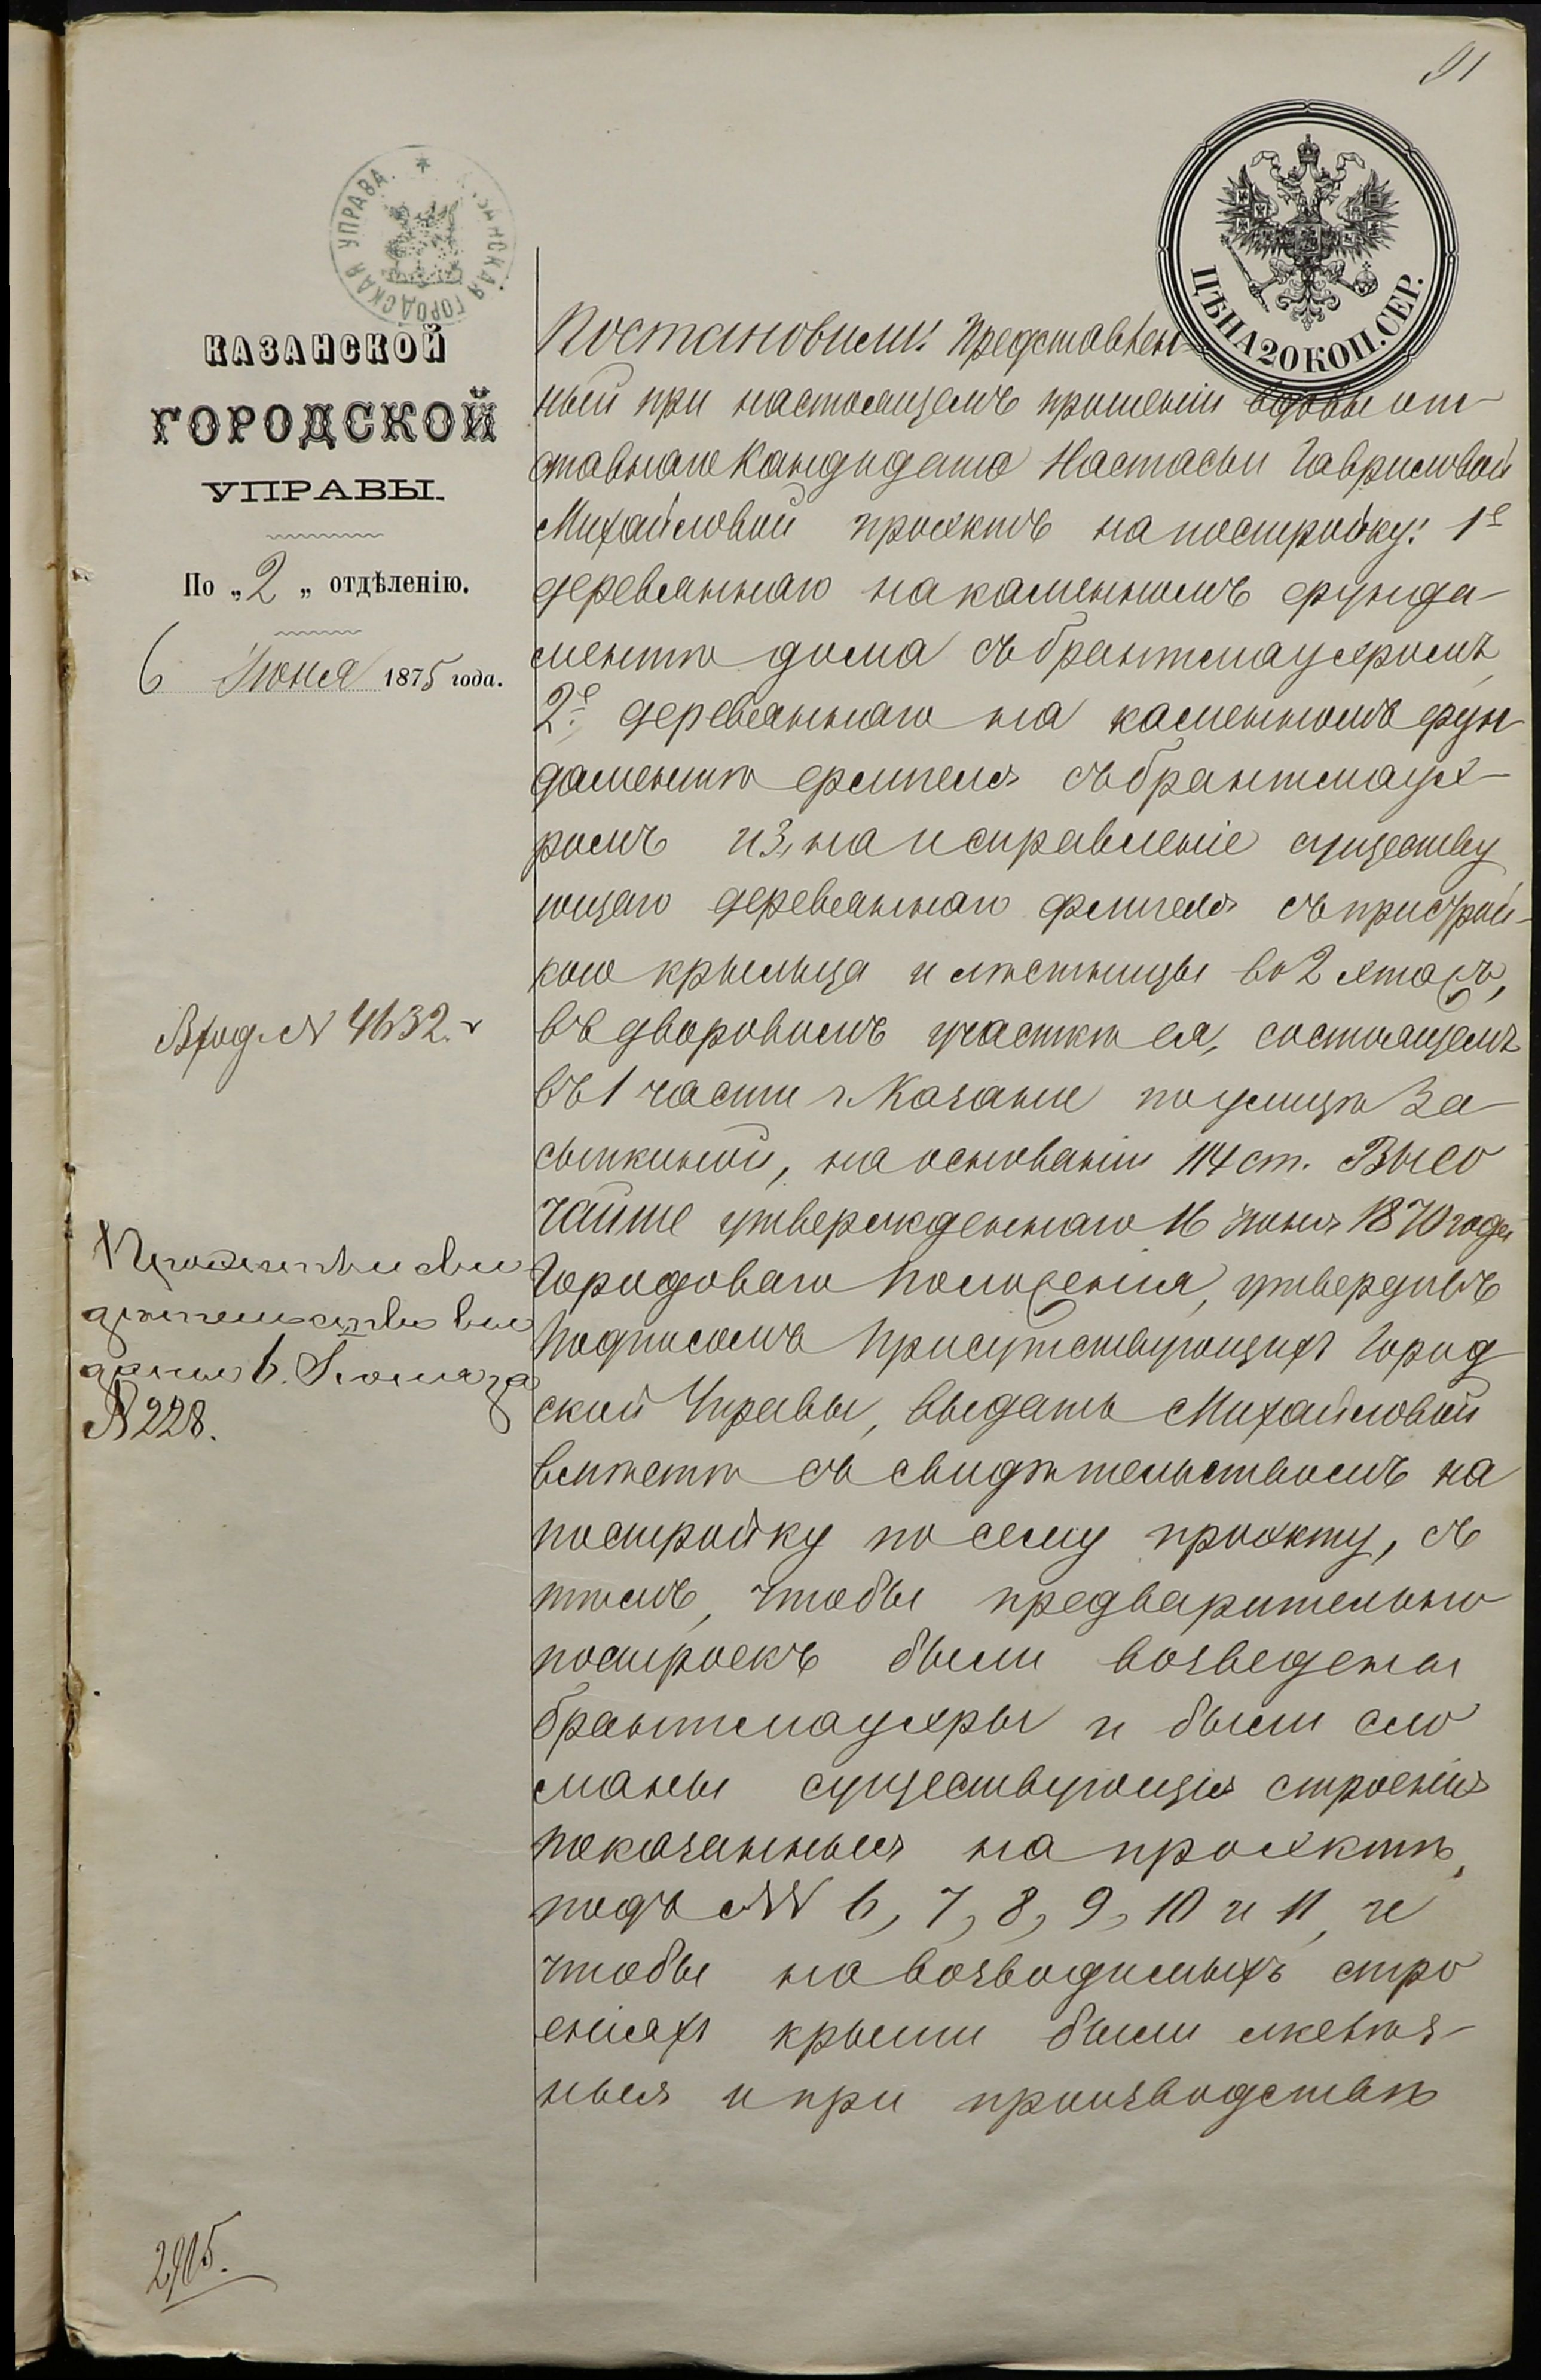 91
КАЗАНСКАЯ ГОРОДСКАЯ УПРАВА.
ЦѢНА 20 КОП. СЕР.
КАЗАНСКОЙ
ГОРОДСКОЙ
УПРАВЫ.
По „2„ отдѣленію.
6 Июня 1875 года.
Вход. N 4632.
Проэктъ и сви
дѣтельство вы
даны 6. Іюня за
N 228.
2905.
Постановили: Представлен-
ный при настоящемъ прошеніи вдовы от-
ставнаго Кандидата Настасьи Гавриловой
Михайловой проэктъ на постройку: 1е
деревяннаго на каменномъ фунда-
ментѣ дома съ брантмауэромъ,
2е деревяннаго на каменномъ фун-
даментѣ флигеля съ брантмауэ-
ромъ и 3, на исправленіе существу
ющаго деревяннаго флигеля съ пристрой-
кою крыльца и лѣстницы во 2 этажъ,
въ дворовомъ участкѣ ея, состоящемъ
въ 1 части г. Казани по улицѣ За-
сыпкиной, на основаніи 114 ст. Высо
чайше утвержденнаго 16 Июня 1870 года
Городоваго положенія, утвердивъ
подписомъ Присутствующихъ Город
ской Управы, выдать Михайловой
вмѣстѣ съ свидѣтельствомъ на
постройку по сему проэкту, съ
тѣмъ, чтобы предварительно
построекъ были возведены
брантмауэры и были сло
маны существующія строенія
показанныя на проэктѣ,
подъ NN 6, 7, 8, 9, 10 и 11, и
чтобы на возводимыхъ стро
еніяхъ крыши были желѣз-
ныя и при производствѣ